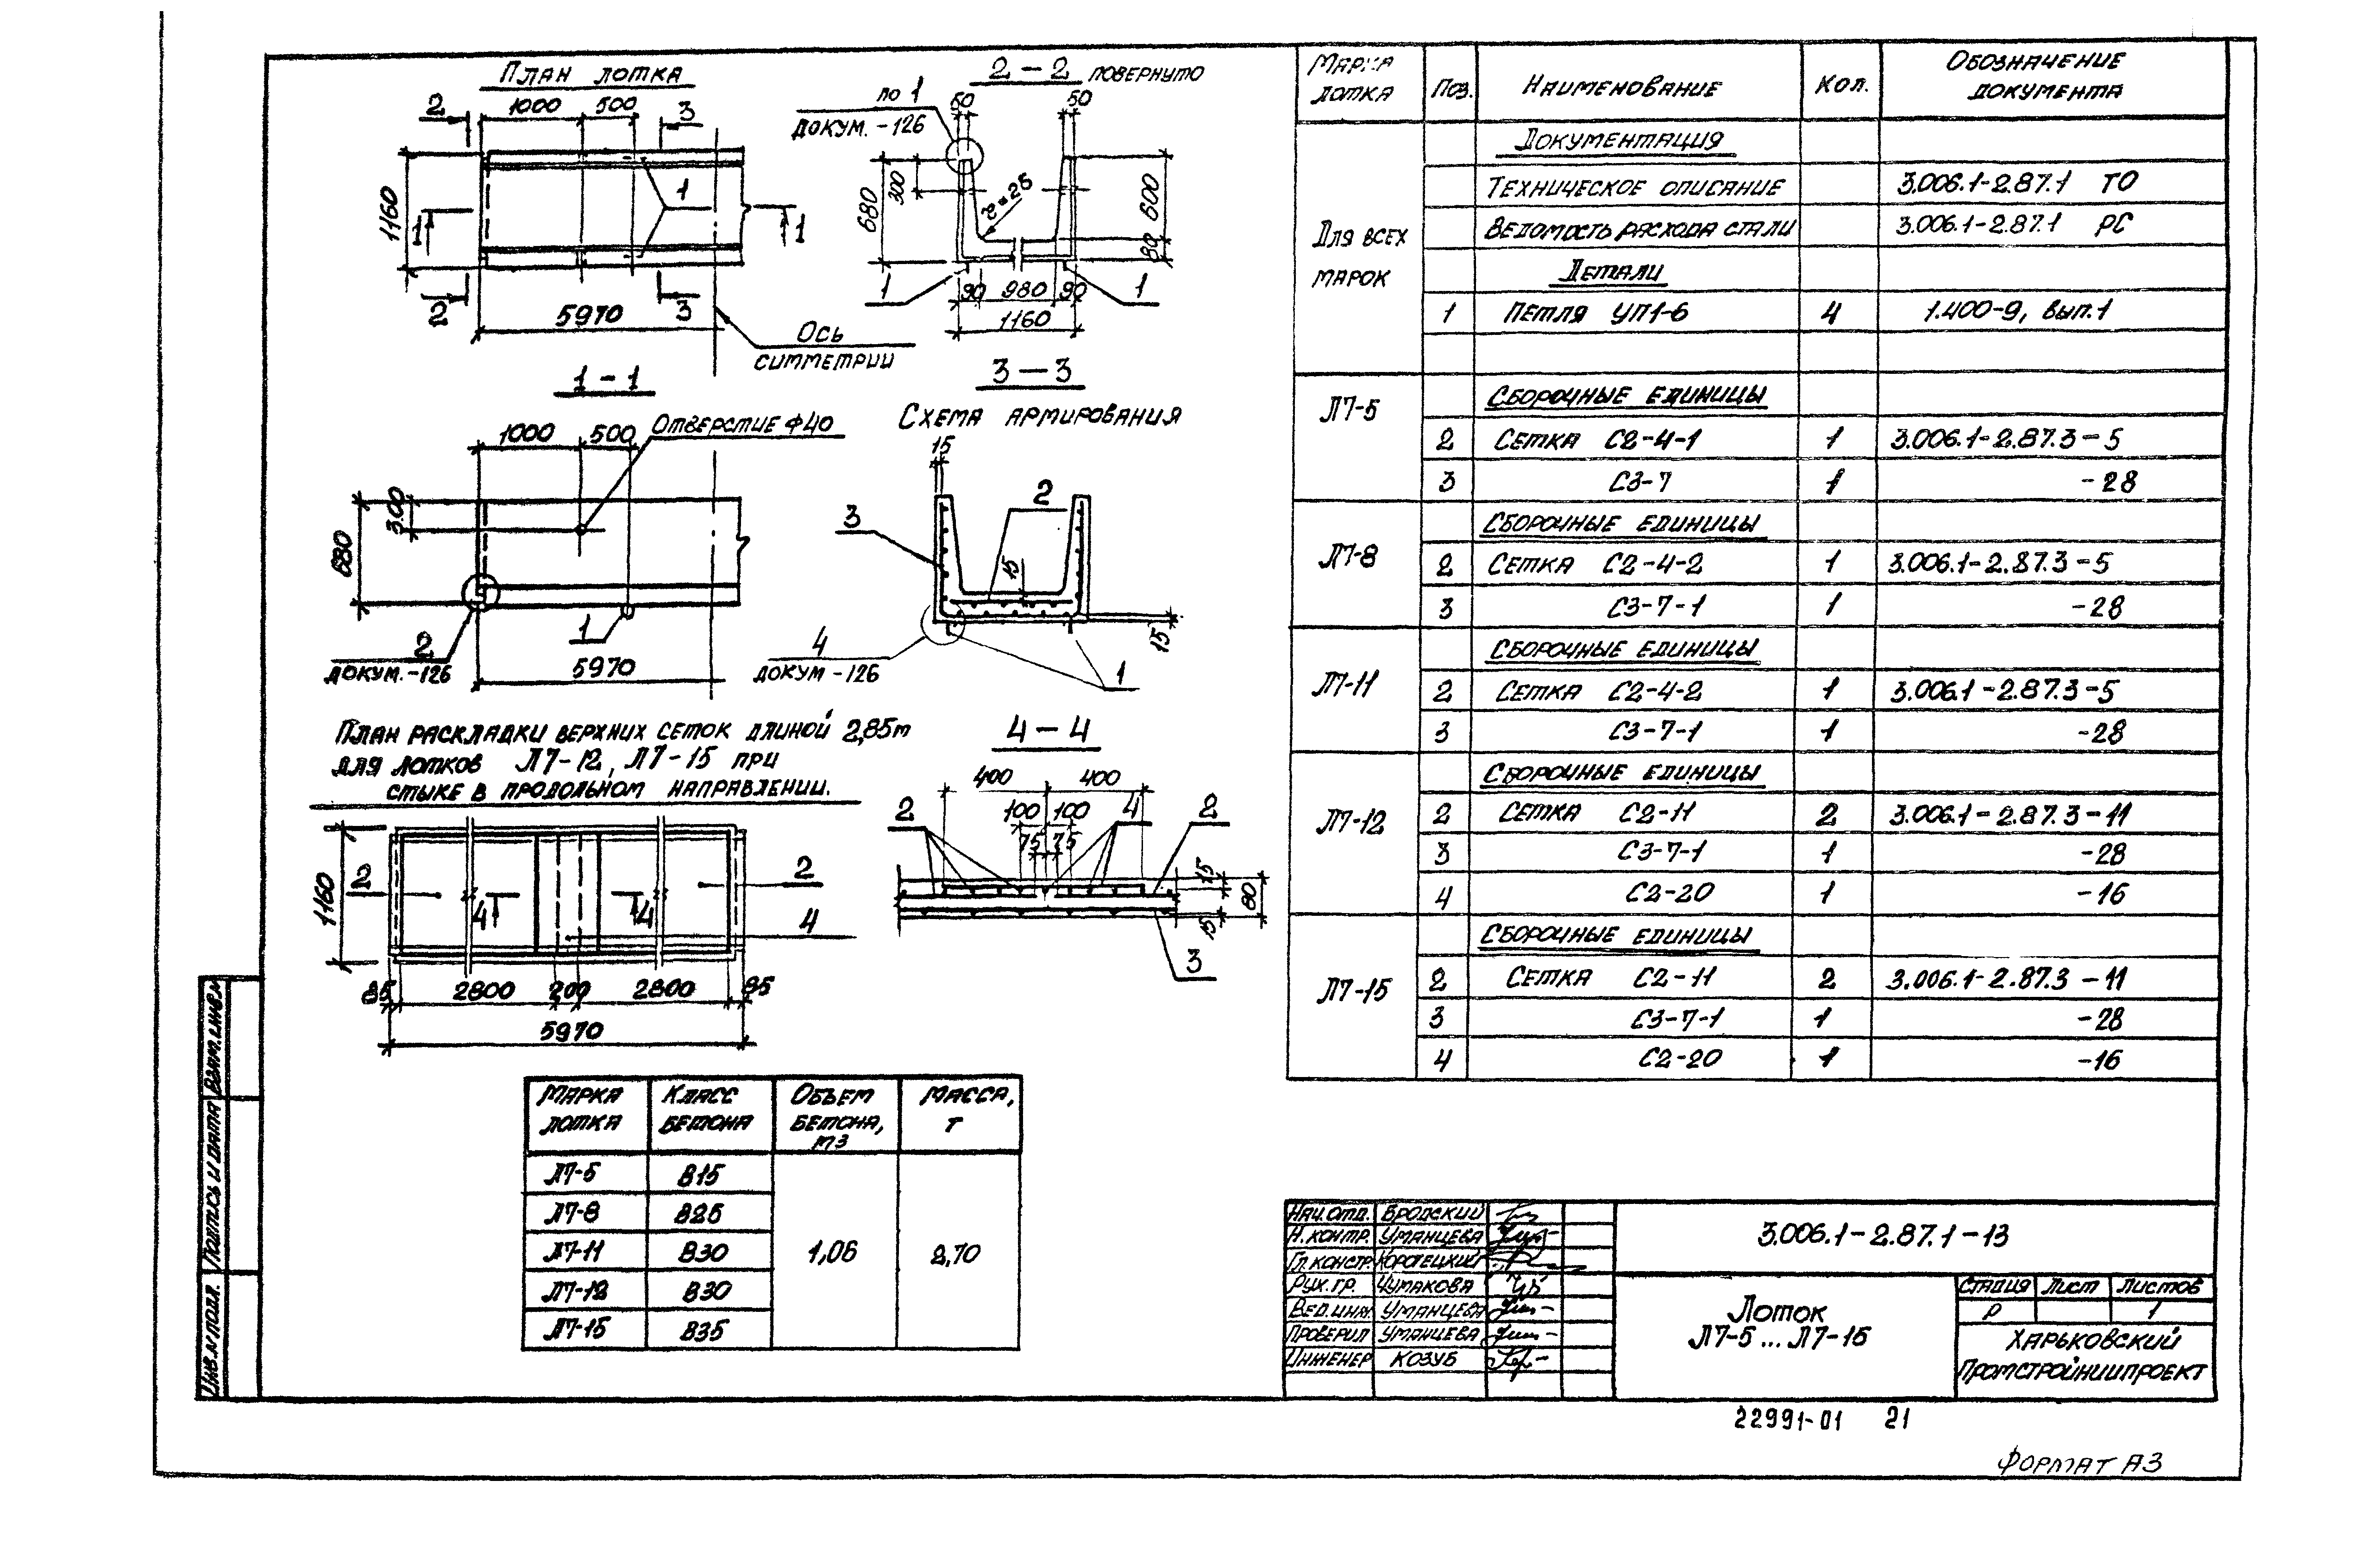 План лотка
2
1000
500
3
1160
1
1
1
2
5970
3
Ось
симметрии
2-2 повернуто
по 1
докум. -126
50
50
300
680
r=25
600
80
1
90
980
90
1
1160
1-1
1000
500
Отверстие ф40
300
680
2
докум. -126
1
5970
3-3
Схема армирования
15
3
2
15
4
докум -126
1
15
План раскладки верхних сеток длиной 2,85м
для лотков Л7-12, Л7-15 при
стыке в продольном направлении.
1160
2
4
4
2
4
85
2800
200
2800
85
5970
4-4
400
400
2
100
100
4
2
75
75
15
80
15
3
Марка лотка
Класс бетона
Объем бетона, м3
Масса, т
Л7-5 В15
Л7-8 В25
Л7-11 В30 1,06 2,70
Л7-12 В30
Л7-15 В35
Марка лотка
Поз.
Наименование
Кол.
Обозначение документа
Документация
Техническое описание 3.006.1-2.87.1 ТО
Для всех марок
Ведомость расхода стали 3.006.1-2.87.1 РС
Детали
1 Петля УП1-6 4 1.400-9, вып.1
Л7-5
Сборочные единицы
2 Сетка С2-4-1 1 3.006.1-2.87.3-5
3 С3-7 1 -28
Л7-8
Сборочные единицы
2 Сетка С2-4-2 1 3.006.1-2.87.3-5
3 С3-7-1 1 -28
Л7-11
Сборочные единицы
2 Сетка С2-4-2 1 3.006.1-2.87.3-5
3 С3-7-1 1 -28
Л7-12
Сборочные единицы
2 Сетка С2-11 2 3.006.1-2.87.3-11
3 С3-7-1 1 -28
4 С2-20 1 -16
Л7-15
Сборочные единицы
2 Сетка С2-11 2 3.006.1-2.87.3-11
3 С3-7-1 1 -28
4 С2-20 1 -16
Нач.отд. Бродский
Н.контр. Уманцева
Гл.констр. Коротецкий
Рук.гр. Чумакова
Вед.инж. Уманцева
Проверил Уманцева
Инженер Козуб
3.006.1-2.87.1-13
Лоток
Л7-5...Л7-15
Стадия Лист Листов
Р 1
Харьковский
Промстройниипроект
Инв.N подл.
Подпись и дата
Взам.инв.N
22991-01 21
Формат А3